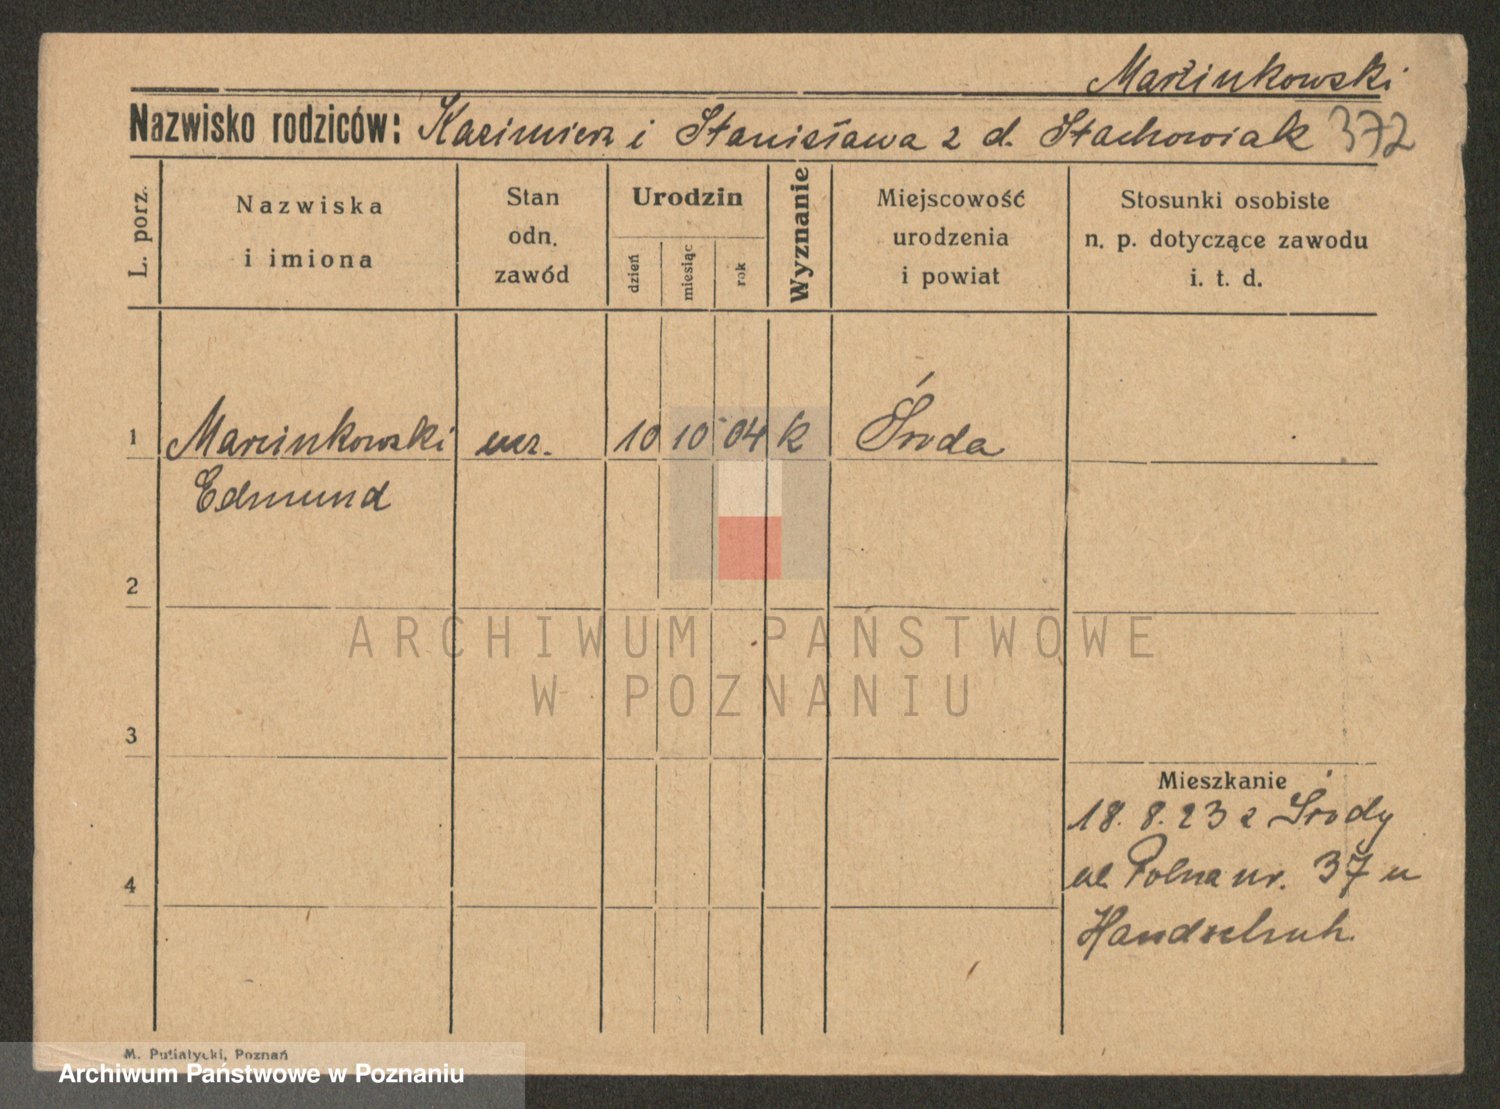 Marcinkowski
Nazwisko rodziców: Kazimierz i Stanisława z d. Stachowiak 372
L. porz.
Nazwiska
i imiona
Stan
odn.
zawód
Urodzin
dzień
miesiąc
rok
Wyznanie
Miejscowość
urodzenia
i powiat
Stosunki osobiste
n. p. dotyczące zawodu
i. t. d.
1 Marcinkowski ucz. 10 10 04 k Środa
Edmund
2
ARCHIWUM PAŃSTWOWE
W POZNANIU
3
Mieszkanie
18. 8. 23 z Środy
ul. Polna nr. 37 u
4
Handschuh.
M. Putiatycki, Poznań
Archiwum Państwowe w Poznaniu